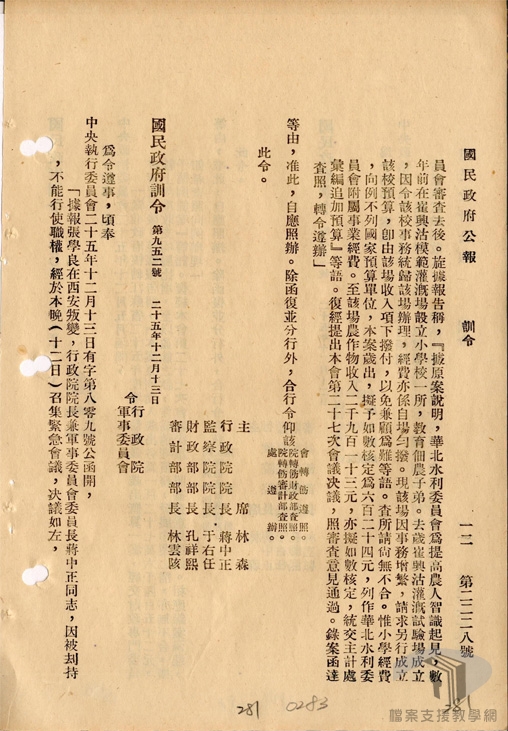 國民政府公報　訓令　一二　第二二二八號
員會審查去後。旋據報告稱，『據原案說明，華北水利委員會爲提高農人智識起見，數
年前在崔興沽模範灌漑場設立小學校一所，教育佃農子弟。去歲崔興沽灌漑試驗場成立
，因令該校事務統歸該場辦理，經費亦係自場勻撥。現該場因事務增繁，請求另行成立
該校預算，卽由該場收入項下撥付，以免兼顧爲難等語。查所請尙無不合。惟小學經費
，向例不列國家預算單位，本案歲出，擬予如數核定爲六百二十四元，列作華北水利委
員會附屬事業經費。至該場農作物收入二千九百一十三元，亦擬如數核定，統交主計處
彙編追加預算』等語。復經提出本會第二十七次會議，照審查意見通過。錄案函達
查照，轉令遵辦」
等由，准此，自應照辦。除函復並分行外，合行令仰該
會轉飭遵照。
院轉飭財政部查照。
院轉飭審計部查照。
處遵辦。
此令。
主席　林森
行政院院長　蔣中正
監察院院長　于右任
財政部部長　孔祥熙
審計部部長　林雲陔
國民政府訓令　第九五二號　二十五年十二月十三日
令行政院
軍事委員會
爲令遵事，頃奉
中央執行委員會二十五年十二月十三日有字第八零九號公函開，
「據報張學良在西安叛變，行政院院長兼軍事委員會委員長蔣中正同志，因被刦持
，不能行使職權，經於本晚（十二日）召集緊急會議，決議如左，
281
0283
281
檔案支援教學網